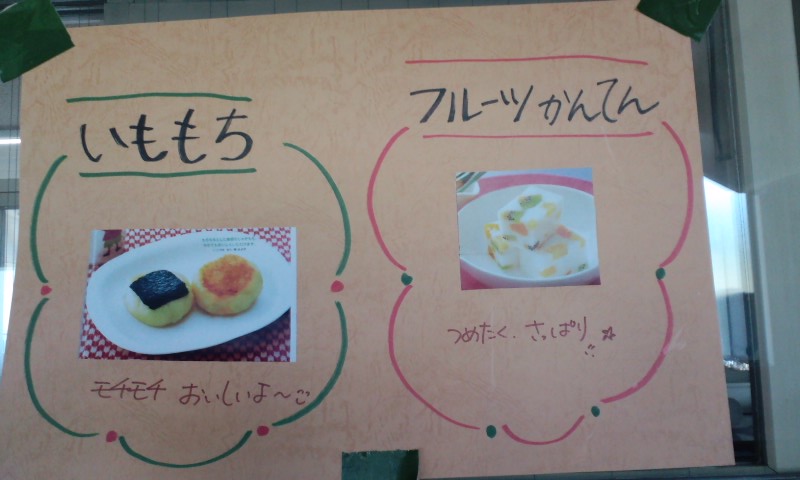 いももち
モチモチ おいしいよ〜
フルーツかんてん
つめたく、さっぱり